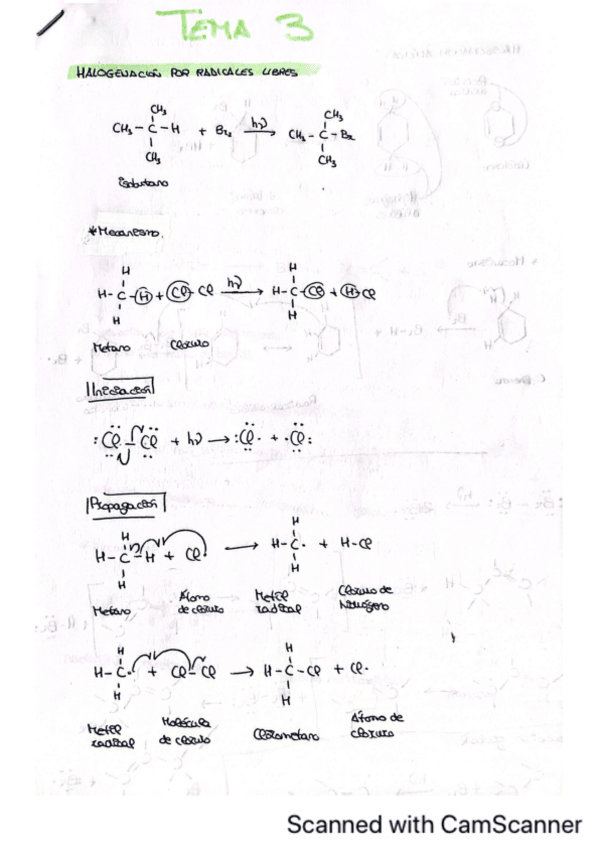 TEMA 3
HALOGENACIÓN POR RADICALES LIBRES
CH₃ CH₃
CH₃ - C - H + Br₂ hν → CH₃ - C - Br
CH₃ CH₃
Isobutano
* Mecanismo.
H H
H - C - H + Cl - Cl hν → H - C - Cl + H - Cl
H H
Metano Cloruro
Iniciación
:Cl - Cl: + hν → :Cl· + ·Cl:
Propagación
H H
H - C - H + Cl· → H - C· + H - Cl
H H
Metano Átomo de cloruro Metil radical Cloruro de hidrógeno
H H
H - C· + Cl - Cl → H - C - Cl + Cl·
H H
Metil radical Molécula de cloruro Clorometano Átomo de cloruro
Scanned with CamScanner